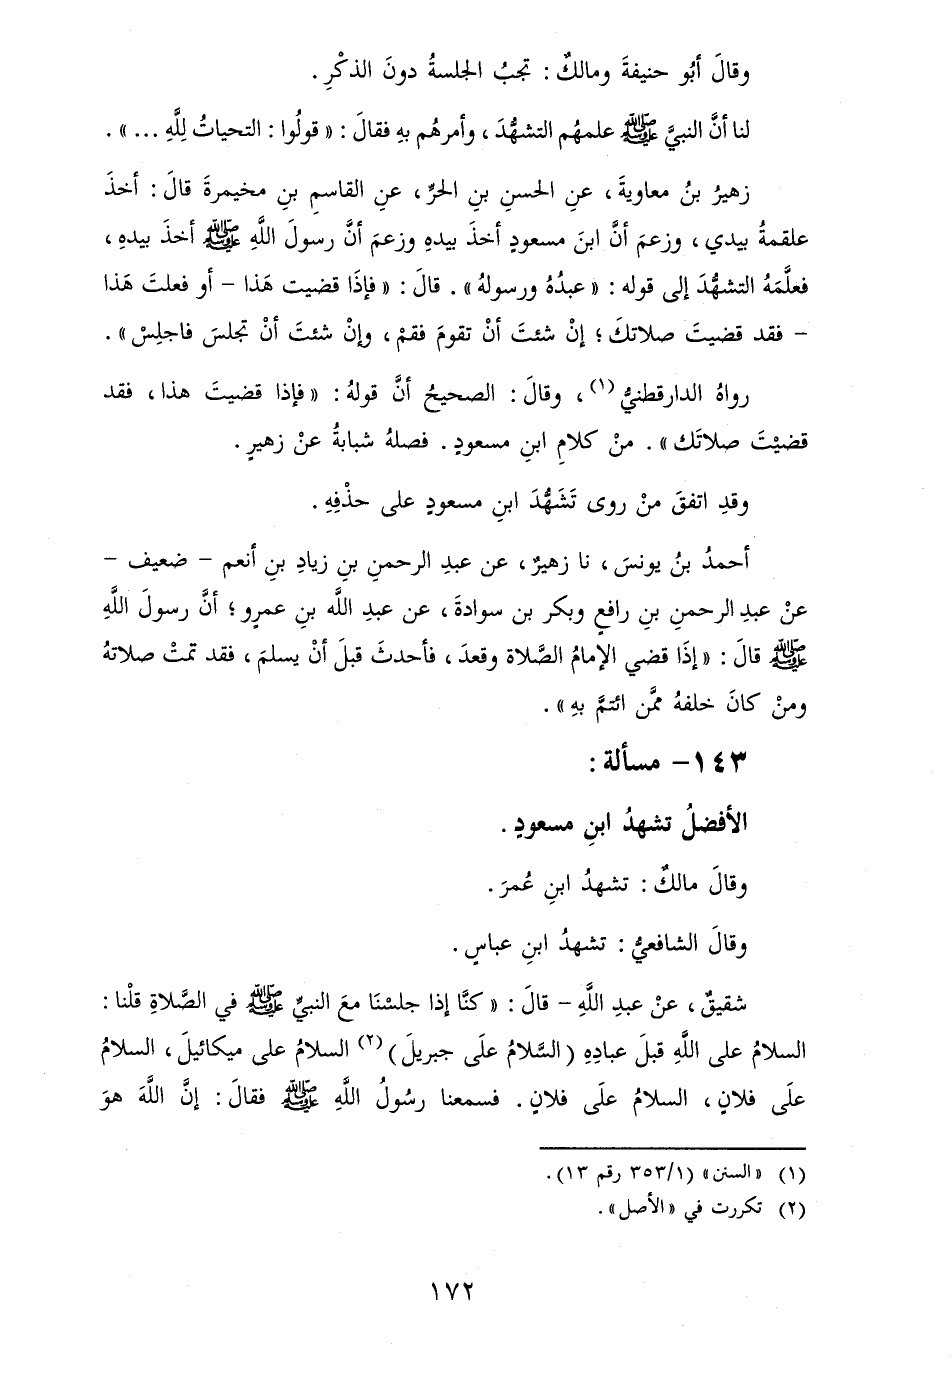 وقالَ أبُو حنيفةَ ومالكٌ : تجبُ الجلسةُ دونَ الذكْرِ .
لنا أنَّ النبيَّ ﷺ علمهُم التشهُّدَ ، وأمرهُم بهِ فقالَ : « قولُوا : التحياتُ لِلَّهِ ... » .
زهيرُ بنُ معاويةَ ، عنِ الحسنِ بنِ الحرِّ ، عنِ القاسمِ بنِ مخيمرةَ قالَ : أخذَ
علقمةُ بيدي ، وزعمَ أنَّ ابنَ مسعودٍ أخذَ بيدهِ وزعمَ أنَّ رسولَ اللَّهِ ﷺ أخذَ بيدهِ ،
فعلَّمَهُ التشهُّدَ إلى قوله : « عبدُهُ ورسولهُ » . قالَ : « فإذَا قضيت هَذا – أو فعلتَ هَذا
– فقد قضيتَ صلاتكَ ؛ إنْ شئتَ أنْ تقومَ فقمْ ، وإنْ شئتَ أنْ تجلسَ فاجلِسْ » .
رواهُ الدارقطنيُّ (١) ، وقالَ : الصحيحُ أنَّ قولهُ : « فإذا قضيتَ هذا ، فقد
قضيْتَ صلاتَك » . منْ كلامِ ابنِ مسعودٍ . فصلهُ شبابةُ عنْ زهيرٍ .
وقدِ اتفقَ منْ روى تَشَهُّدَ ابنِ مسعودٍ على حذْفِهِ .
أحمدُ بنُ يونسَ ، نا زهيرٌ ، عن عبدِ الرحمنِ بنِ زيادِ بنِ أنعم – ضعيف –
عنْ عبدِ الرحمنِ بنِ رافعٍ وبكر بن سوادةَ ، عن عبدِ اللَّه بنِ عمرٍو ؛ أنَّ رسولَ اللَّهِ
ﷺ قالَ : « إذَا قضي الإمامُ الصَّلاة وقعدَ ، فأحدثَ قبلَ أنْ يسلمَ ، فقد تمتْ صلاتهُ
ومنْ كانَ خلفهُ ممَّن ائتمَّ بهِ » .
١٤٣ – مسألة :
الأفضلُ تشهدُ ابنِ مسعودٍ .
وقالَ مالكٌ : تشهدُ ابنِ عُمرَ .
وقالَ الشافعيُّ : تشهدُ ابنِ عباسٍ .
شقيقٌ ، عنْ عبدِ اللَّهِ – قالَ : « كنَّا إذا جلسْنَا معَ النبيِّ ﷺ في الصَّلاةِ قلْنا :
السلامُ على اللَّهِ قبلَ عبادِهِ (السَّلامُ علَى جبريلَ) (٢) السلامُ على ميكائيلَ ، السلامُ
علَى فلانٍ ، السلامُ علَى فلانٍ . فسمعنا رسُولُ اللَّهِ ﷺ فقالَ : إنَّ اللَّهَ هوَ
(١) « السنن » (٣٥٣/١ رقم ١٣) .
(٢) تكررت في « الأصل » .
١٧٢